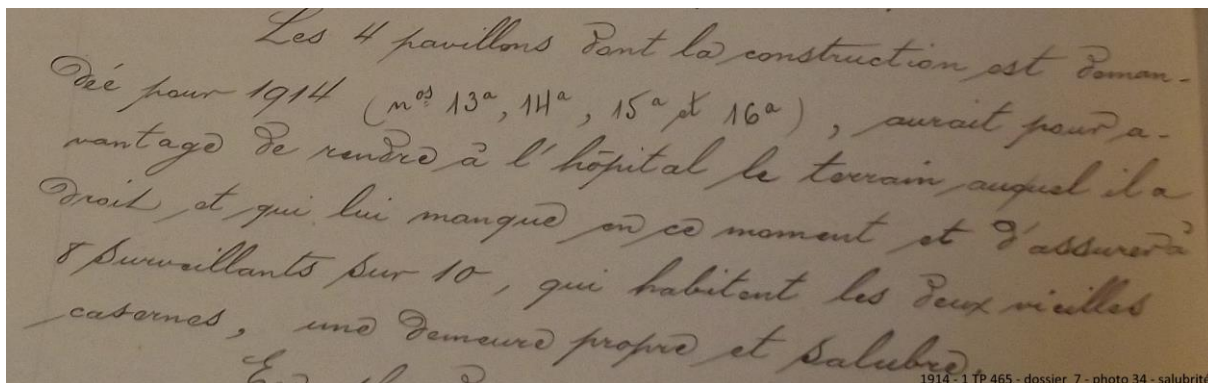 Les 4 pavillons dont la construction est deman-
dée pour 1914 (nos 13a, 14a, 15a et 16a), aurait pour a-
vantage de rendre à l'hôpital le terrain auquel il a
droit et qui lui manque en ce moment et d'assurer à
8 surveillants sur 10, qui habitent les deux vieilles
casernes, une demeure propre et salubre.
1914 - 1 TP 465 - dossier 7 - photo 34 - salubrité